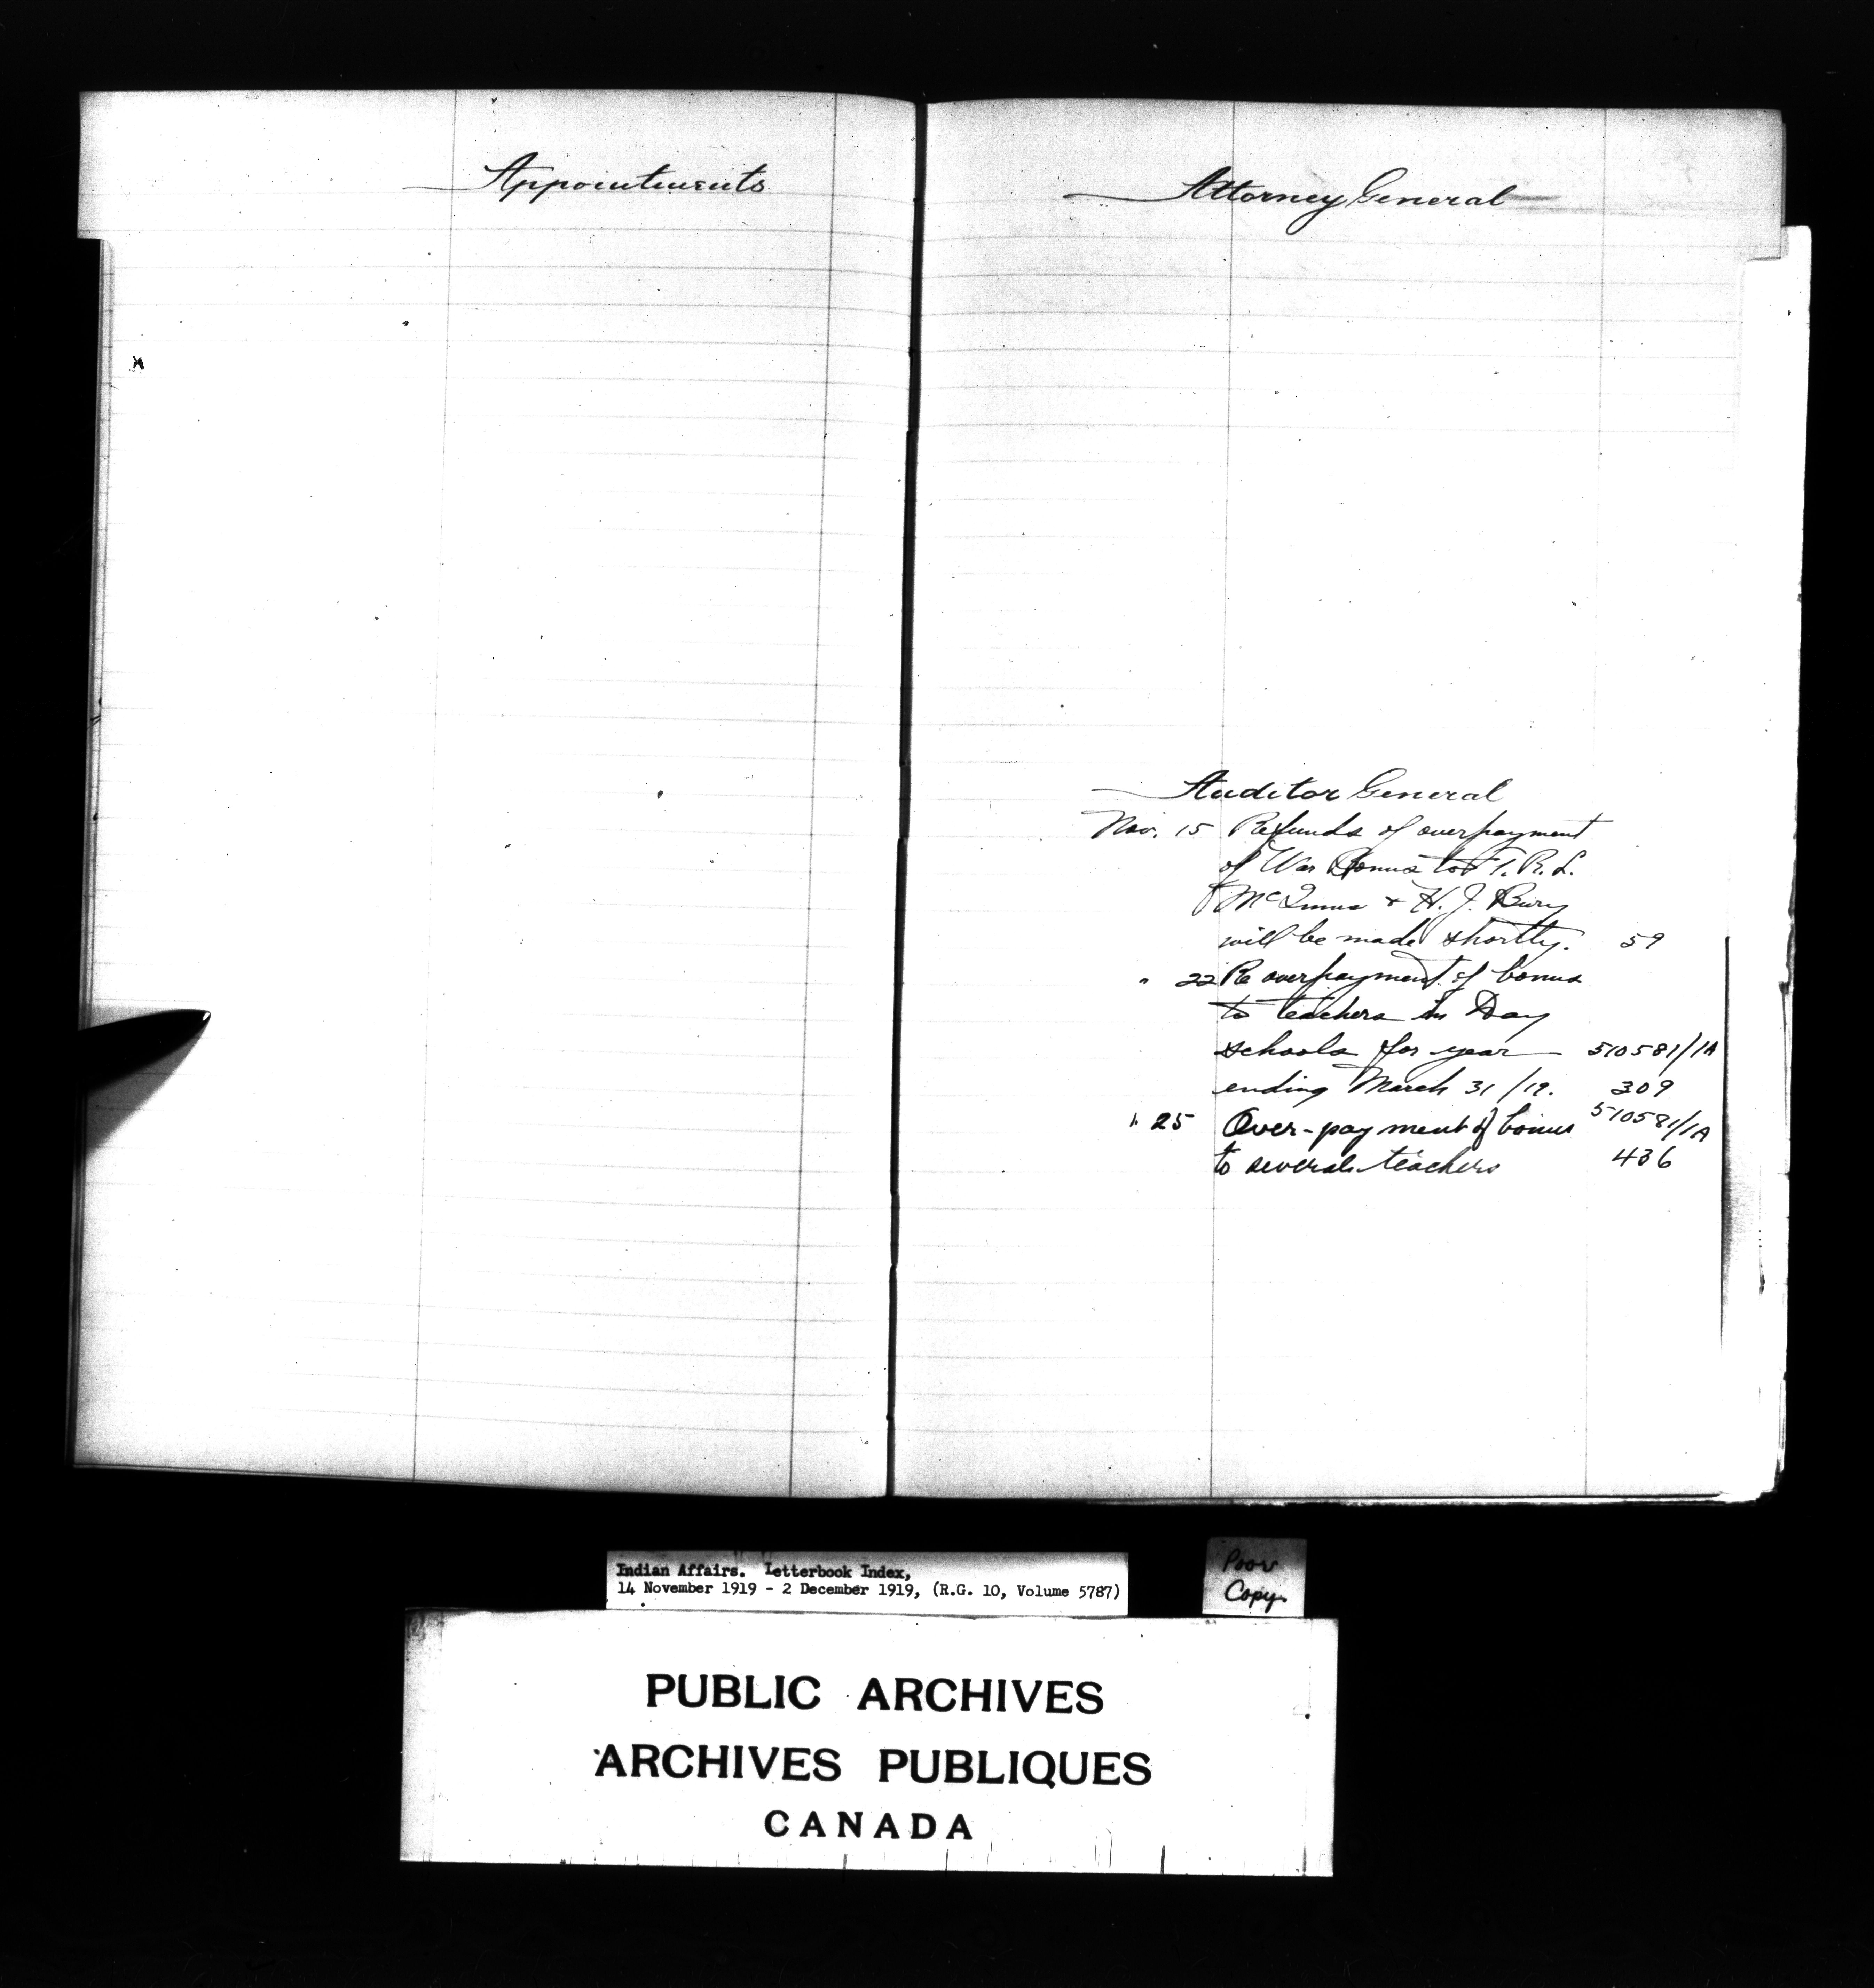 Appointments
Attorney General
Auditor General
Nov. 15 Refunds of overpayment
of War Bonus to T. R. L.
McInnes & H. J. Bury
will be made shortly. 59
" 22 Re overpayment of bonus
to teachers in Day
schools for year — 510581/1A
ending March 31/19. 309
" 25 Over-payment of bonus 510581/1A
to several teachers 436
Indian Affairs. Letterbook Index,
14 November 1919 - 2 December 1919, (R.G. 10, Volume 5787)
Poor
Copy.
PUBLIC ARCHIVES
ARCHIVES PUBLIQUES
CANADA